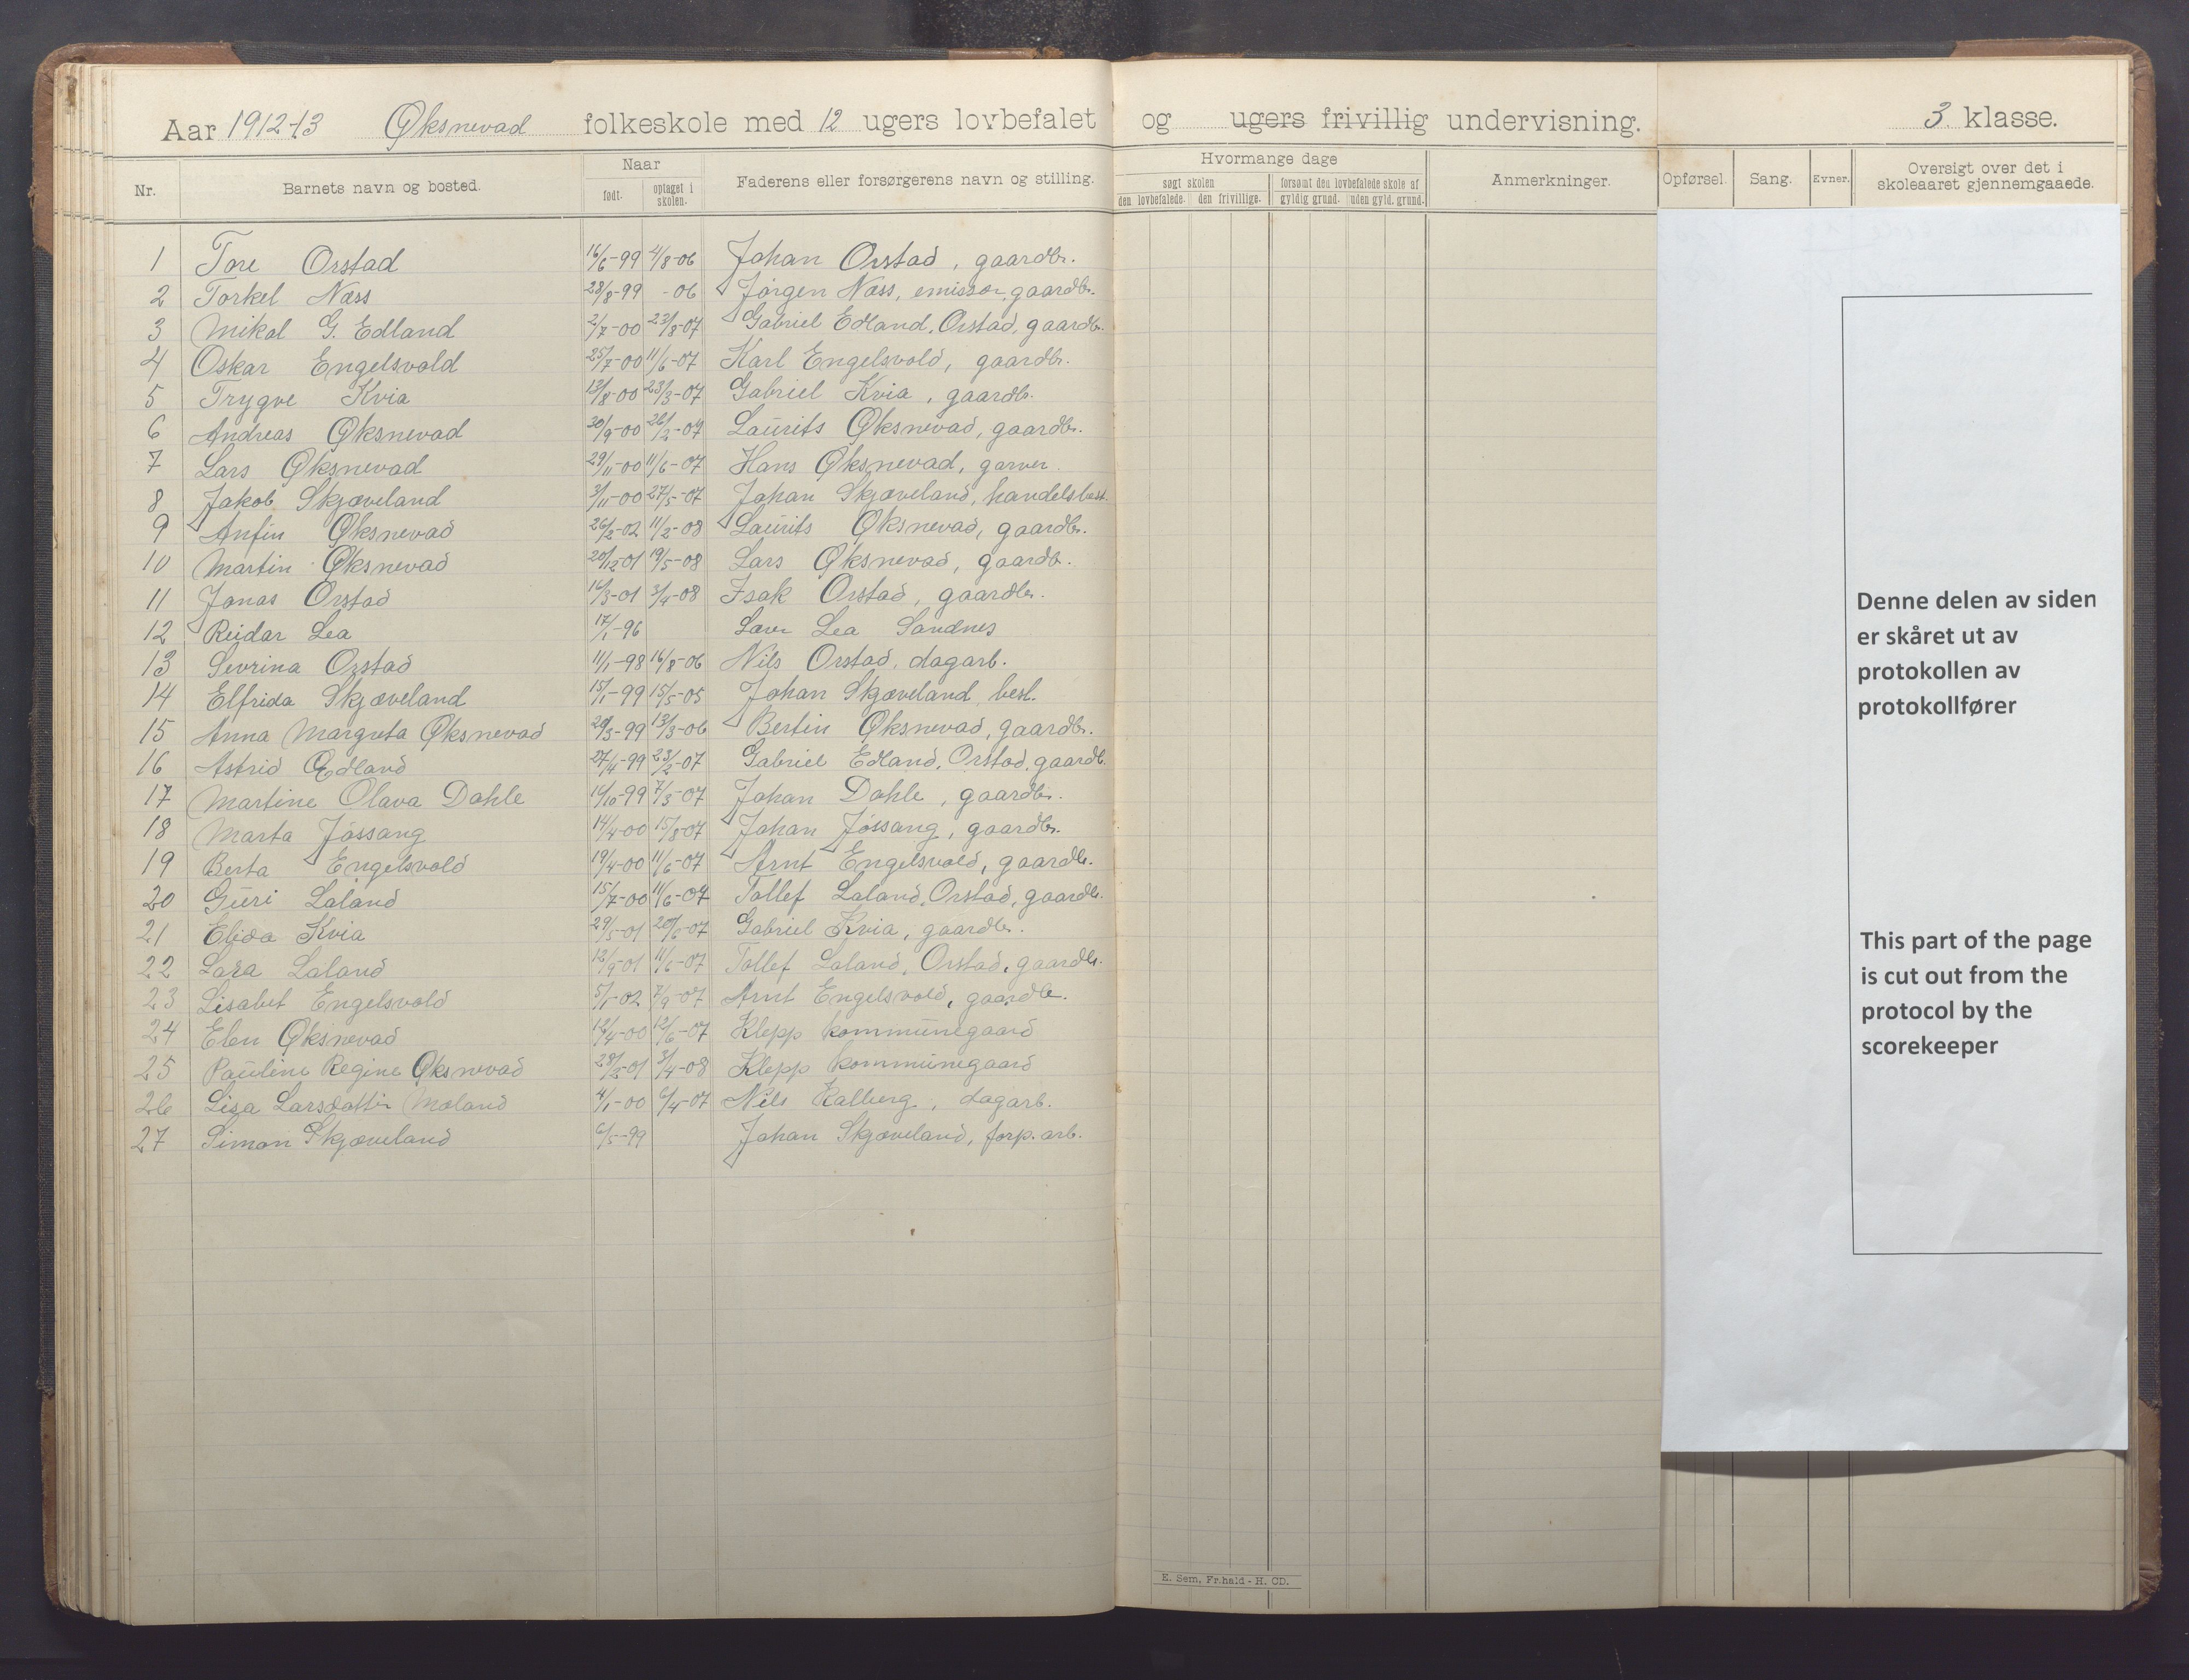 Aar 1912-13 Øksnevad folkeskole med 12 ugers lovbefalet og ugers frivillig undervisning. 3 klasse.
Nr. Barnets navn og bosted. Naar født. optaget i skolen. Faderens eller forsørgerens navn og stilling. Hvormange dage søgt skolen den lovbefalede. den frivillige. forsømt den lovbefalede skole af gyldig grund. uden gyld. grund. Anmerkninger. Opførsel. Sang. Evner. Oversigt over det i skoleaaret gjennemgaaede.
1 Tore Orstad 16/6-99 4/8-06 Johan Orstad, gaardbr.
2 Torkel Næss 28/8-99 -06 Jørgen Næss, emissær, gaardbr.
3 Mikal G. Edland 2/7-00 23/8-07 Gabriel Edland, Orstad, gaardbr.
4 Oskar Engelsvold 25/7-00 11/6-07 Karl Engelsvold, gaardbr.
5 Trygve Kvia 13/8-00 23/3-07 Gabriel Kvia, gaardb.
6 Andreas Øksnevad 30/9-00 26/2-07 Laurits Øksnevad, gaardbr.
7 Lars Øksnevad 29/11-00 11/6-07 Hans Øksnevad, garver
8 Jakob Skjæveland 3/11-00 27/5-07 Johan Skjæveland, handelsbest.
9 Anfin Øksnevad 26/2-02 11/2-08 Laurits Øksnevad, gaardbr.
10 Martin Øksnevad 20/12-01 19/5-08 Lars Øksnevad, gaardb.
11 Jonas Orstad 16/3-01 3/4-08 Isak Orstad, gaardbr.
12 Reidar Lea 17/1-96 Lea Sandnes
13 Sevrina Orstad 11/1-98 16/8-06 Nils Orstad, dagarb.
14 Elfrida Skjæveland 15/1-99 15/5-05 Johan Skjæveland, best.
15 Anna Margreta Øksnevad 20/3-99 13/3-06 Bertin Øksnevad, gaardbr.
16 Astrid Edland 27/4-99 23/2-07 Gabriel Edland, Orstad, gaardb.
17 Martine Olava Dahle 19/10-99 7/3-07 Johan Dahle, gaardbr.
18 Marta Jøssang 14/4-00 15/8-07 Johan Jøssang, gaardbr.
19 Berta Engelsvold 19/4-00 11/6-07 Arnt Engelsvold, gaardb.
20 Guri Laland 15/7-00 11/6-07 Tollef Laland, Orstad, gaardb.
21 Elida Kvia 29/5-01 20/6-07 Gabriel Kvia, gaardbr.
22 Lara Laland 12/9-01 11/6-07 Tollef Laland, Orstad, gaardbr.
23 Lisabet Engelsvold 5/1-02 7/9-07 Arnt Engelsvold, gaardb.
24 Elen Øksnevad 12/4-00 12/6-07 Klepp kommunegaard
25 Pauline Regine Øksnevad 28/2-01 3/4-08 Klepp kommunegaard
26 Lisa Larsdatter Moland 4/1-00 6/4-07 Nils Kalberg, dagarb.
27 Simon Skjæveland 6/5-99 Johan Skjæveland, forp. arb.
Denne delen av siden
er skåret ut av
protokollen av
protokollfører
This part of the page
is cut out from the
protocol by the
scorekeeper
E. Sem, Fr.hald - H. CD.